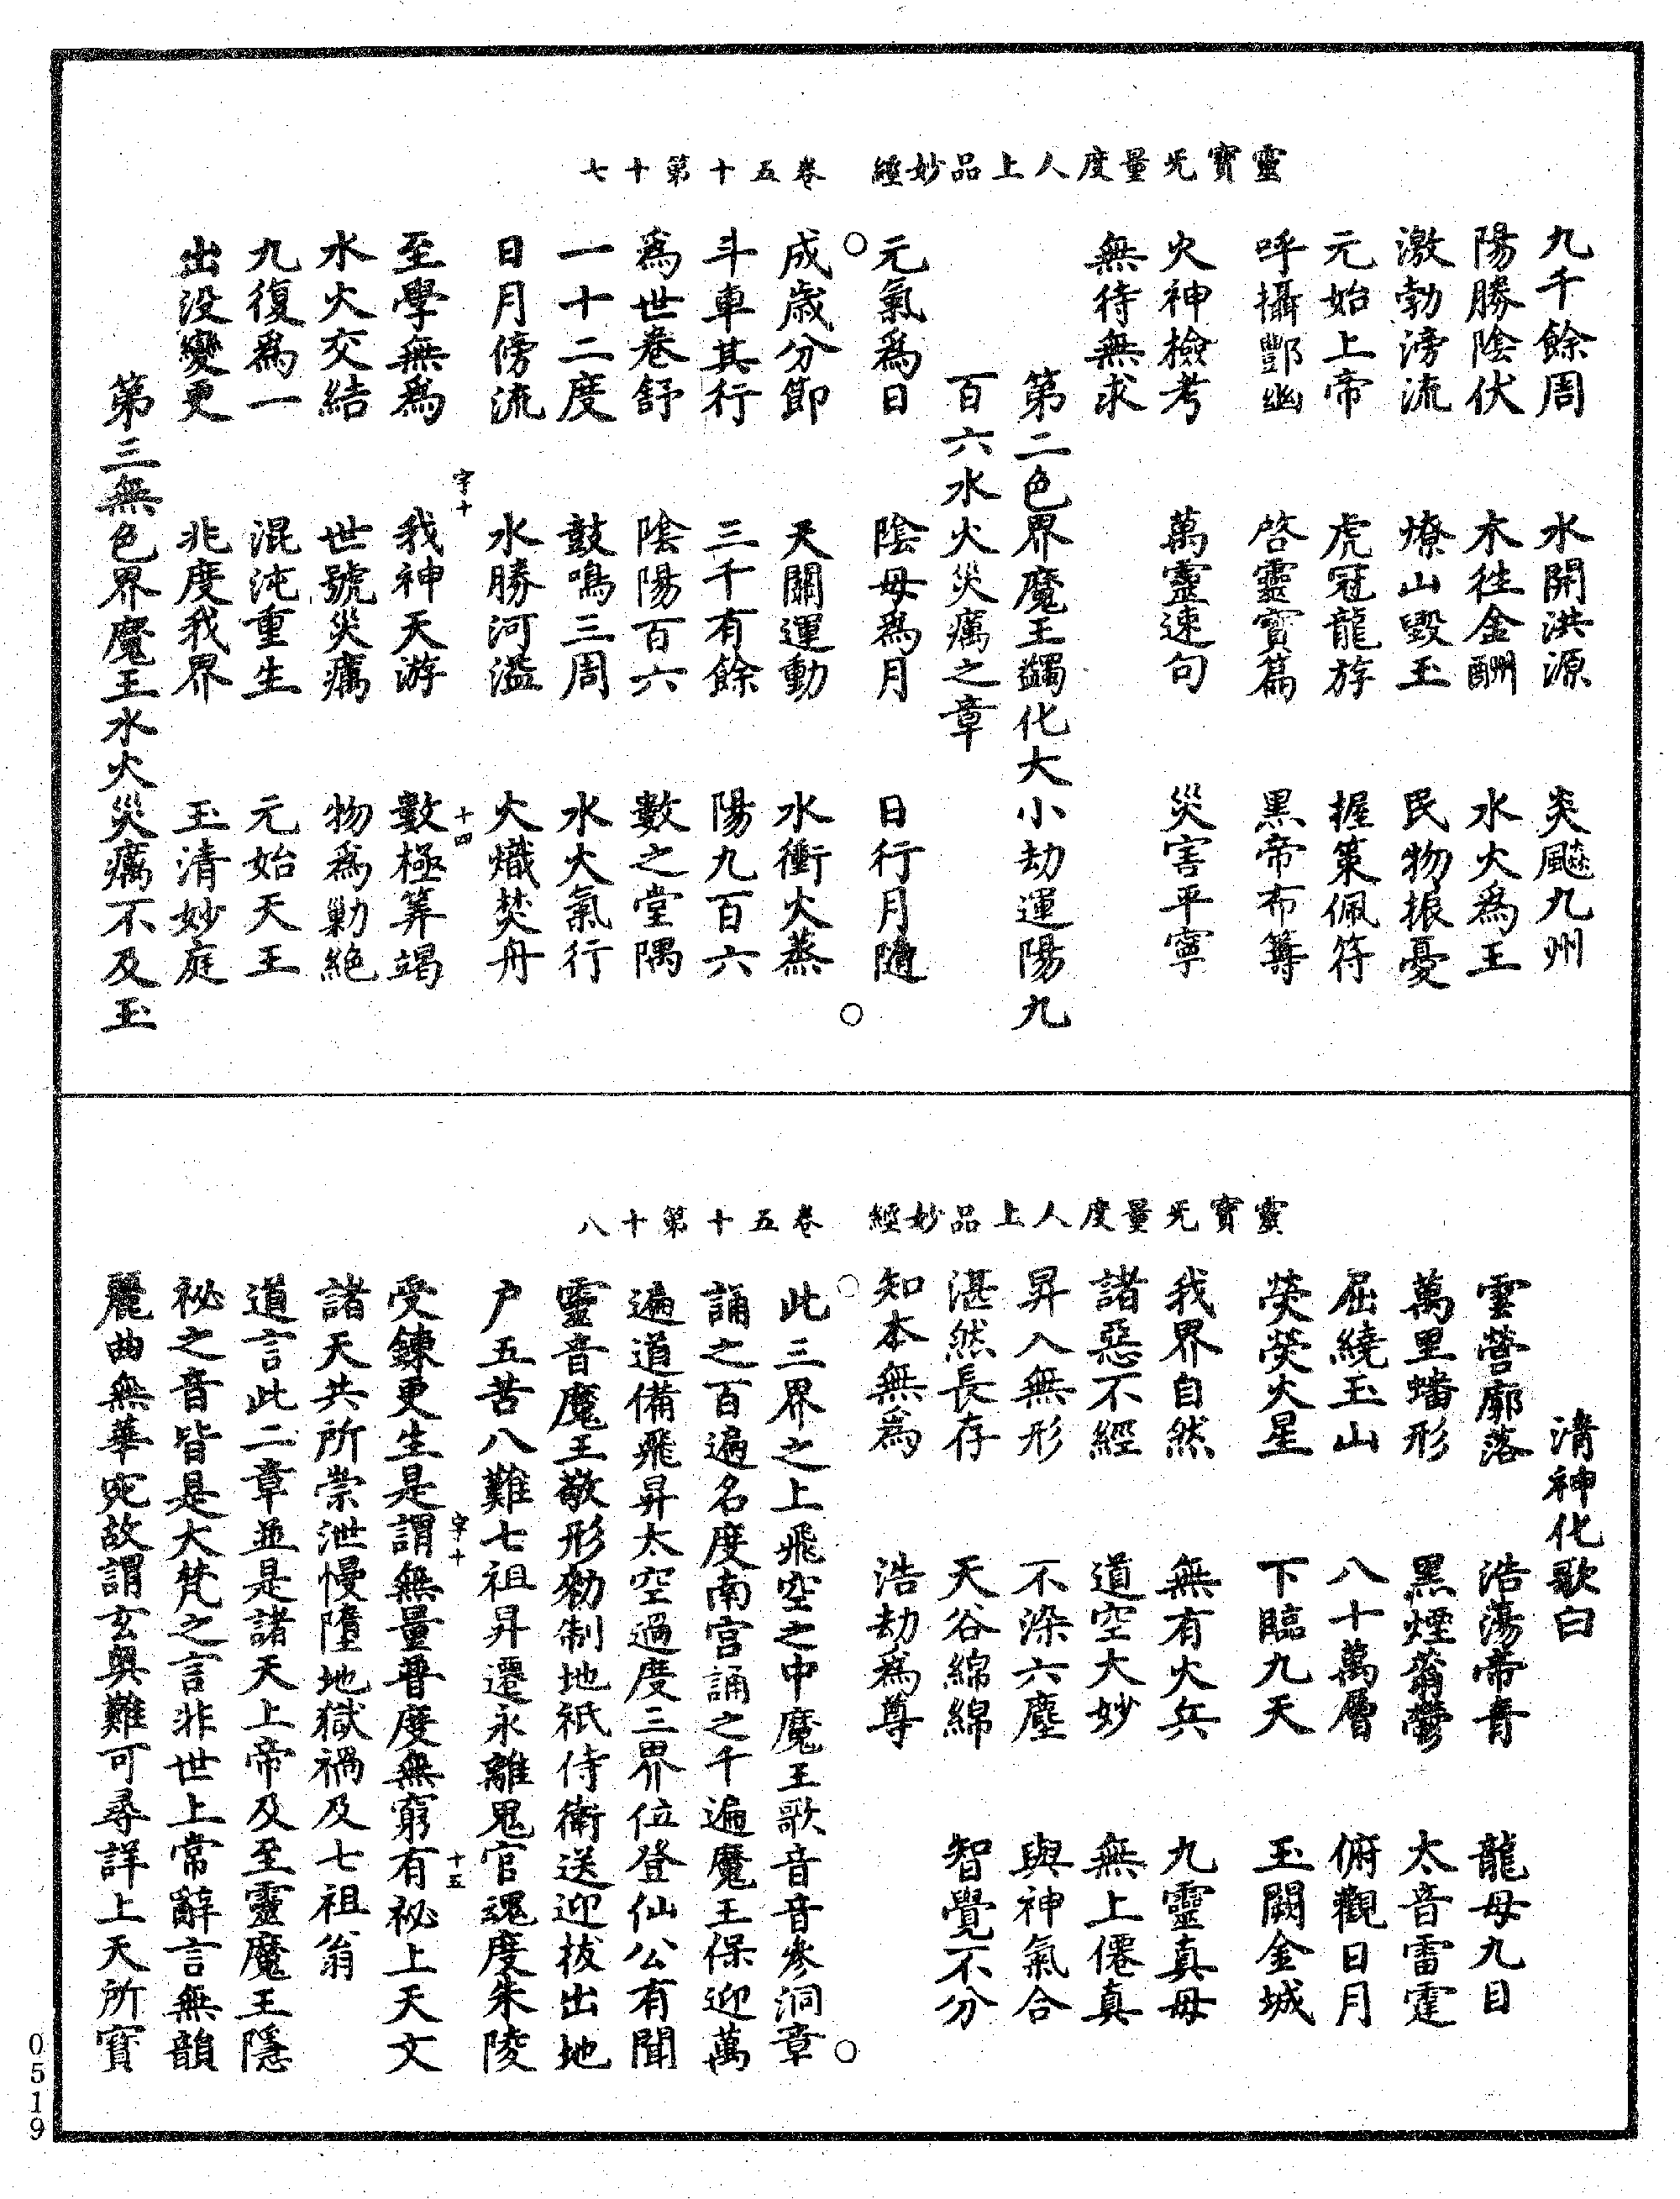 靈寶无量度人上品妙經　卷五十第十七
九千餘周　水開洪源　炎飈九州
陽勝陰伏　木往金酬　水火為王
激勃滂流　燎山毀玉　民物振憂
元始上帝　虎冠龍斿　握策佩符
呼攝酆幽　啓靈寶篇　黑帝布籌
火神檢考　萬靈速句　災害平寧
無待無求
第二色界魔王蠲化大小劫運陽九
百六水火災癘之章
元氣為日　陰母為月　日行月隨
成歲分節　天關運動　水衝火蒸
斗車其行　三千有餘　陽九百六
為世卷舒　陰陽百六　數之堂隅
一十二度　鼓鳴三周　水火氣行
日月傍流　水勝河溢　火熾焚舟
字十　十四
至學無為　我神天游　數極筭竭
水火交結　世號災癘　物為勦絕
九復為一　混沌重生　元始天王
出没變更　兆度我界　玉清妙庭
第三無色界魔王水火災癘不及玉
靈寶无量度人上品妙經　卷五十第十八
清神化歌曰
雲營廓落　浩蕩帝青　龍母九目
萬里蟠形　黑煙蓊鬱　太音雷霆
屈繞玉山　八十萬層　俯觀日月
熒熒火星　下臨九天　玉闕金城
我界自然　無有火兵　九靈真母
諸惡不經　道空大妙　無上僊真
昇入無形　不染六塵　與神氣合
湛然長存　天谷綿綿　智覺不分
知本無為　浩劫為尊
此三界之上飛空之中魔王歌音音參洞章
誦之百遍名度南宮誦之千遍魔王保迎萬
遍道備飛昇太空過度三界位登仙公有聞
靈音魔王敬形勑制地祇侍衛送迎拔出地
户五苦八難七祖昇遷永離鬼官魂度朱陵
字十　十五
受鍊更生是謂無量普度無窮有祕上天文
諸天共所崇泄慢墮地獄禍及七祖翁
道言此二章並是諸天上帝及至靈魔王隱
祕之音皆是大梵之言非世上常辭言無韻
麗曲無華宛故謂玄奥難可尋詳上天所寶
0519